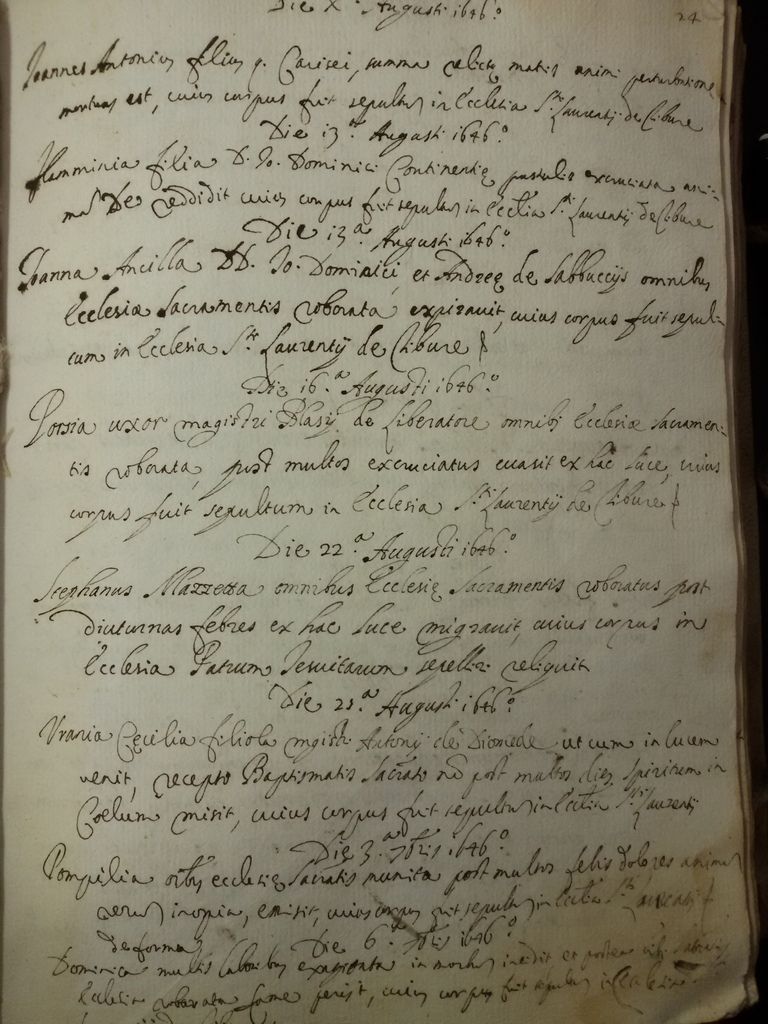 Die X Augusti 1646.º
24
Joannes Antonius filius q. Carisei, summa relictę matris animi perturbatione
mortuus est, cuius corpus fuit sepultus in Ecclesia S.ti Laurentij de Clibure
Die 13.ª Augusti 1646.º
Flamminia filia D. Jo. Dominici Continentię pustulis excruciata ani-
mā Deo reddidit cuius corpus fuit sepultus in Ecclesia S.ti Laurentij de Clibure
Die 13.ª Augusti 1646.º
Joanna Ancilla DD. Jo. Dominici, et Andreę de Sabbuccijs omnibus
Ecclesiæ Sacramentis roborata expirauit, cuius corpus fuit sepul-
tum in Ecclesia S.ti Laurentij de Clibure
Die 16.ª Augusti 1646.º
Porsia uxor magistri Blasij de Liberatore omnibus Ecclesiæ Sacramen-
tis roborata, post multos excruciatus euasit ex hac luce, cuius
corpus fuit sepultum in Ecclesia S.ti Laurentij de Clibure
Die 22.ª Augusti 1646.º
Stephanus Mazzetta omnibus Ecclesię Sacramentis roboratus post
diuturnas febres ex hac luce migrauit, cuius corpus in
Ecclesia Patrum Jesuitarum sepellire reliquit
Die 25.ª Augusti 1646.º
Vrania Cęcilia filiola mgistri Antonij de Diomede ut cum in lucem
uenit, recepto Baptismatis Sacrato nō post multos dies spiritum in
Coelum misit, cuius corpus fuit sepultus in Ecclia S.ti Laurentij
Die 3.ª 7bris 1646.º
Pompilia oibus ecclesię Sacratis munita post multos felis dolores animā
uerus inopia, emisit, cuius corpus fuit sepultus in Ecclia S.ti Laurentij
Die 6.ª 7bris 1646.º
Dominica multis laboribus in morbus incidit et postea
Ecclesię roborata fame perijt, cuius corpus fuit sepultus in